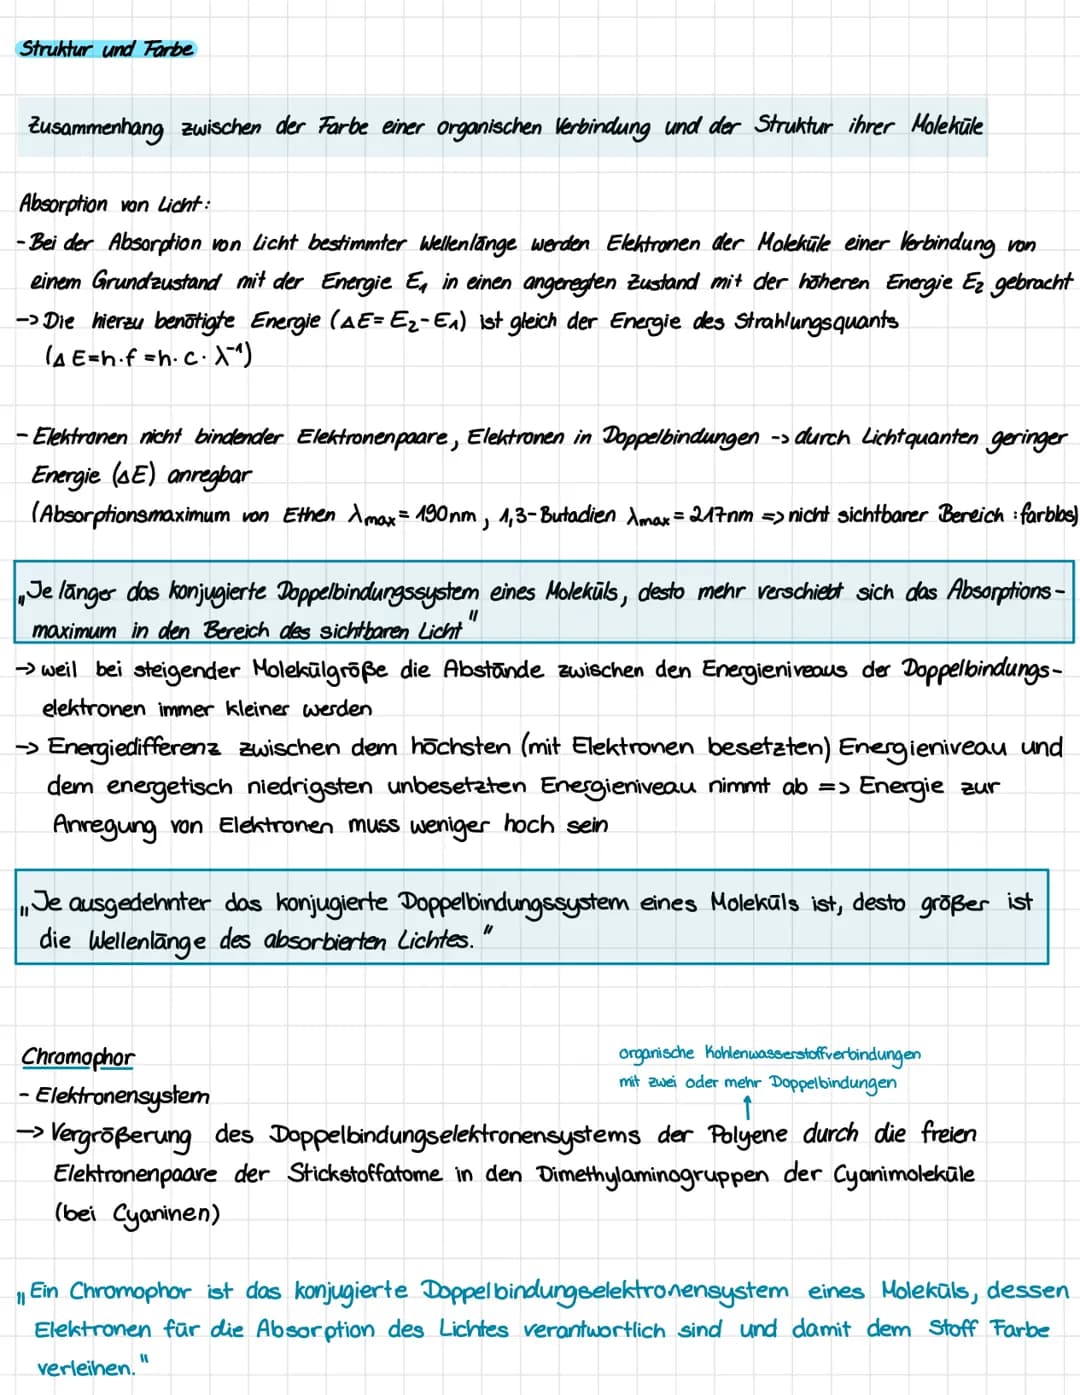 Struktur und Farbe
Zusammenhang zwischen der Farbe einer organischen Verbindung und der Struktur ihrer Moleküle
Absorption von Licht:
- Bei der Absorption von Licht bestimmter Wellenlänge werden Elektronen der Moleküle einer Verbindung von
einem Grundzustand mit der Energie E₁ in einen angeregten Zustand mit der höheren Energie E₂ gebracht
-> Die hierzu benötigte Energie (ΔE= E₂-E₁) ist gleich der Energie des Strahlungsquants
(ΔE=h·f =h·c·λ⁻¹)
- Elektronen nicht bindender Elektronenpaare, Elektronen in Doppelbindungen -> durch Lichtquanten geringer
Energie (ΔE) anregbar
(Absorptionsmaximum von Ethen λmax= 190nm, 1,3-Butadien λmax= 217nm => nicht sichtbarer Bereich : farblos)
„Je länger das konjugierte Doppelbindungssystem eines Moleküls, desto mehr verschiebt sich das Absorptions-
maximum in den Bereich des sichtbaren Licht"
-> weil bei steigender Molekülgröße die Abstände zwischen den Energieniveaus der Doppelbindungs-
elektronen immer kleiner werden
-> Energiedifferenz zwischen dem höchsten (mit Elektronen besetzten) Energieniveau und
dem energetisch niedrigsten unbesetzten Energieniveau nimmt ab => Energie zur
Anregung von Elektronen muss weniger hoch sein
„Je ausgedehnter das konjugierte Doppelbindungssystem eines Moleküls ist, desto größer ist
die Wellenlänge des absorbierten Lichtes."
Chromophor
organische Kohlenwasserstoffverbindungen
mit zwei oder mehr Doppelbindungen
- Elektronensystem
-> Vergrößerung des Doppelbindungselektronensystems der Polyene durch die freien
Elektronenpaare der Stickstoffatome in den Dimethylaminogruppen der Cyanimoleküle
(bei Cyaninen)
„Ein Chromophor ist das konjugierte Doppelbindungselektronensystem eines Moleküls, dessen
Elektronen für die Absorption des Lichtes verantwortlich sind und damit dem Stoff Farbe
verleihen."